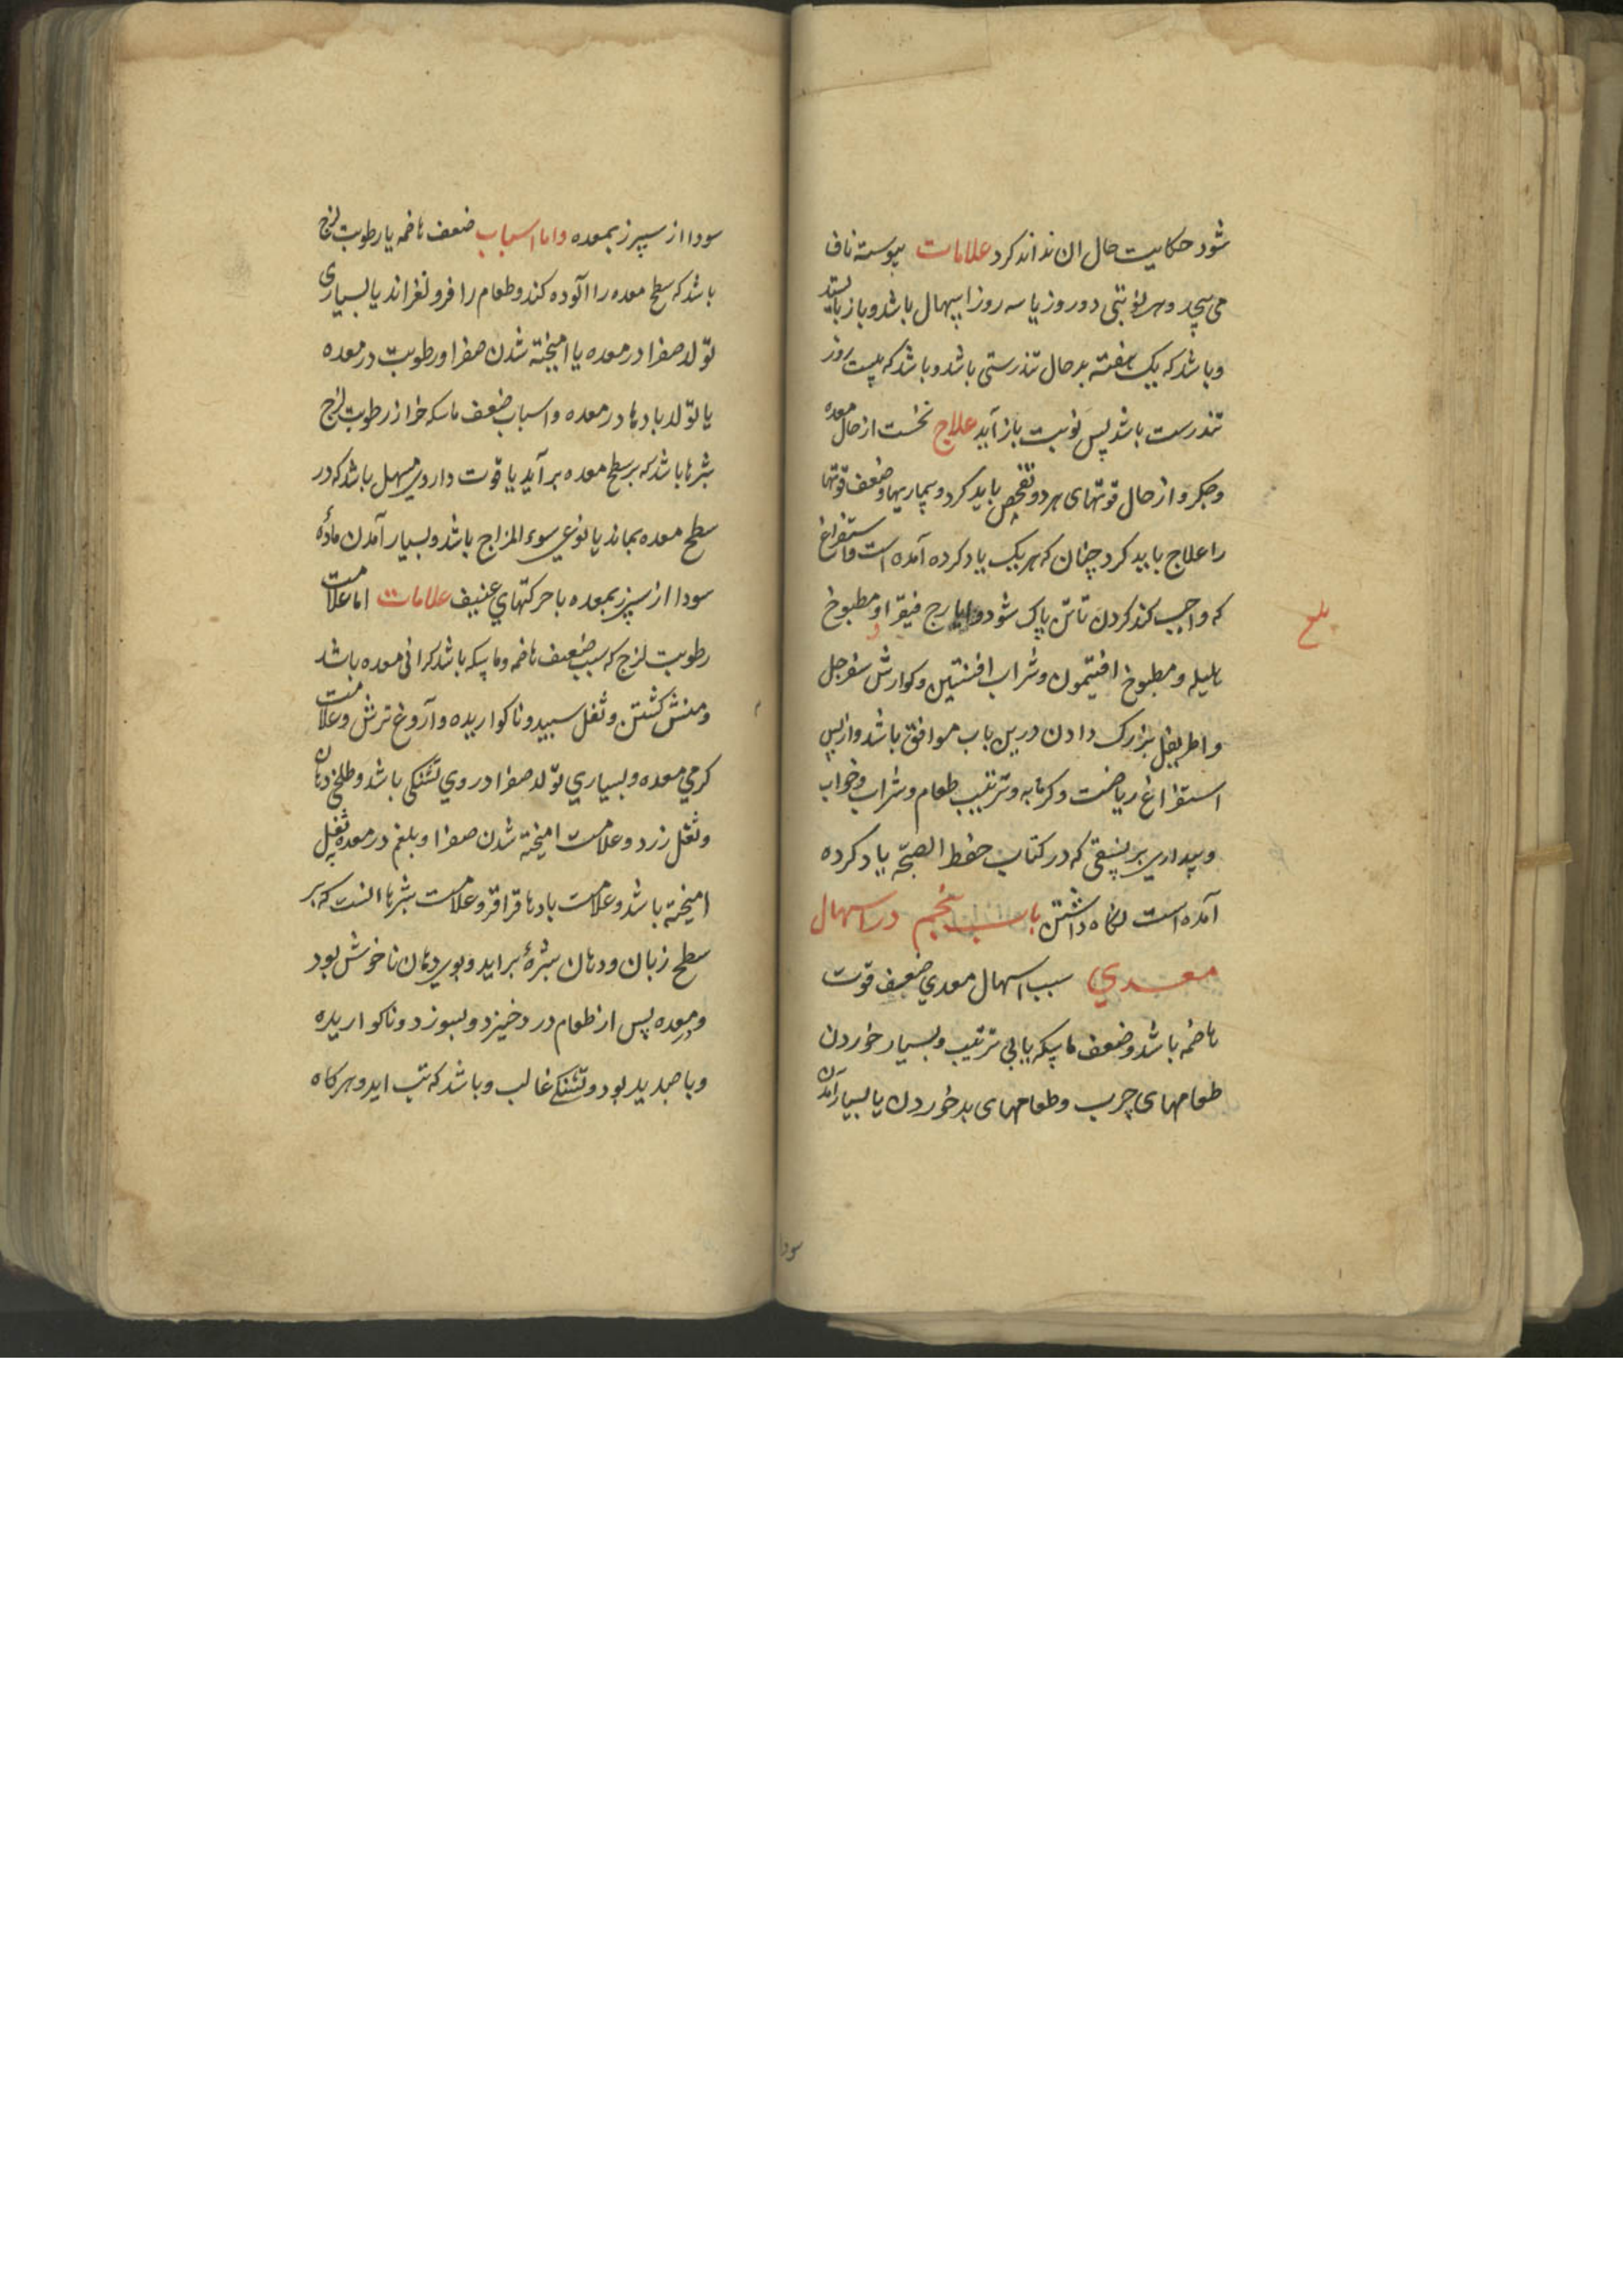 شود حکایت حال ان نداند کرد علامات پیوسته ناف
می پیچد و هر نوبتی دو روز یا سه روز اسهال باشد و باز بایستد
و باشد که یک هفته بر حال تندرستی باشد و باشد که بیست روز
تندرست باشد پس نوبت باز آید علاج نخست از حال معده
و جکر و از حال قوتهای هر دو تفحص باید کرد و بیماریها و ضعف قوتها
را علاج باید کرد چنان که هر یک یاد کرده آمده است و استفراغ
که واجب کند کردن تا تن پاک شود و ایارج فیقرا و مطبوخ
هلیله و مطبوخ افتیمون و شراب افسنتین و کوارش سفرجل
و اطریفل بزرک دادن درین باب موافق باشد و از پس
استفراغ ریاضت و کرمابه و ترتیب طعام و شراب و خواب
و بیداری بر نسقی که در کتاب حفظ الصحّه یاد کرده
آمده است نکاه داشتن باب پنجم در اسهال
معدی سبب اسهال معدی ضعف قوت
هاضمه باشد و ضعف ماسکه یا بی ترتیب و بسیار خوردن
طعامهای چرب و طعامهای بد خوردن یا بسیار آمدن
سودا
سودا از سپرز بمعده و اما اسباب ضعف هاضمه یا رطوبت لزج
باشد که سطح معده را آلوده کند و طعام را فرو لغزاند یا بسیاری
تولّد صفرا در معده یا امیخته شدن صفرا و رطوبت در معده
یا تولّد بادها در معده و اسباب ضعف ماسکه جز از رطوبت لزج
بثرها باشد که بر سطح معده بر آید یا قوت داروی مسهل باشد که در
سطح معده بماند یا نوعی سوء المزاج باشد و بسیار آمدن مادّه
سودا از سپرز بمعده با حرکتهای عنیف علامات اما علامت
رطوبت لزج که سبب ضعف هاضمه و ماسکه باشد کرانی معده باشد
و منش کشتن و ثفل سپید و ناکواریده و آروغ ترش و علامت
کرمی معده و بسیاری تولّد صفرا در وی تشنکی باشد و طلخی دهان
و ثفل زرد و علامت امیخته شدن صفرا و بلغم در معده ثفل
امیخته باشد و علامت بادها قراقر و علامت بثرها انست که بر
سطح زبان و دهان بثرهٔ براید و بوی دهان ناخوش بود
و معده پس از طعام درد خیزد و بسوزد و ناکواریده
و با صدید بود و تشنکی غالب و باشد که تب اید و هرکاه